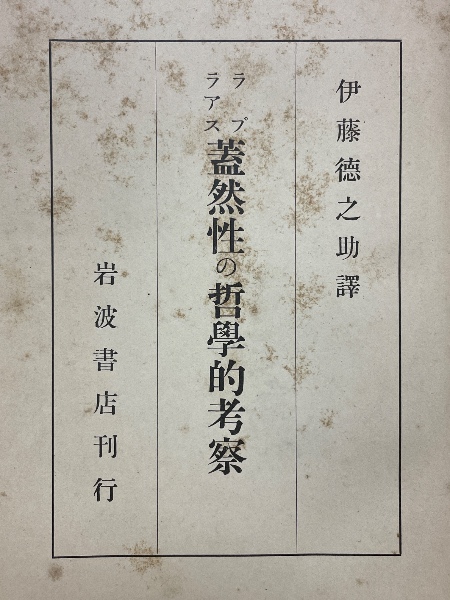 伊藤德之助譯
ラプ
ラアス
蓋然性の哲學的考察
岩波書店刊行